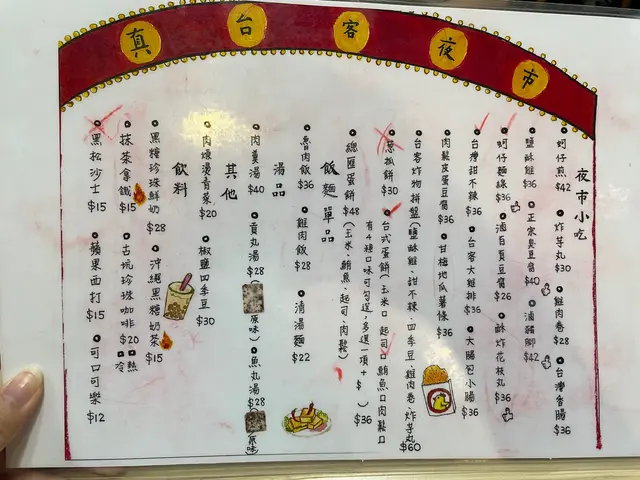 真台客夜市
夜市小吃
蚵仔煎 $42
炸芋丸 $30
雞肉卷 $28
台灣香腸 $36
鹽酥雞 $36
正宗臭豆腐 $40
滷豬腳 $42
蚵仔麵線 $36
滷百頁豆腐 $26
酥炸花枝丸 $36
台灣甜不辣 $36
台客大雞排 $36
大腸包小腸 $36
肉鬆皮蛋豆腐 $36
甘梅地瓜薯條 $36
台客炸物拼盤 (鹽酥雞、甜不辣、四季豆、雞肉卷、炸芋丸) $60
蔥抓餅 $30
台式蛋餅(玉米口 起司口 鮪魚口 肉鬆口
有4種口味可勾選,多選一項+$ ) $36
總匯蛋餅 $48 (玉米、鮪魚、起司、肉鬆)
飯麵單品
魯肉飯 $36
雞肉飯 $28
清湯麵 $22
湯品
肉羹湯 $40
貢丸湯 $28 (原味)
魚丸湯 $28 (原味)
其他
肉燥燙青菜 $20
椒鹽四季豆 $30
飲料
黑糖珍珠鮮奶 $28
沖繩黑糖奶茶 $15
抹茶拿鐵 $15
古坑珍珠咖啡 $20 口熱 口冷
黑松沙士 $15
蘋果西打 $15
可口可樂 $12